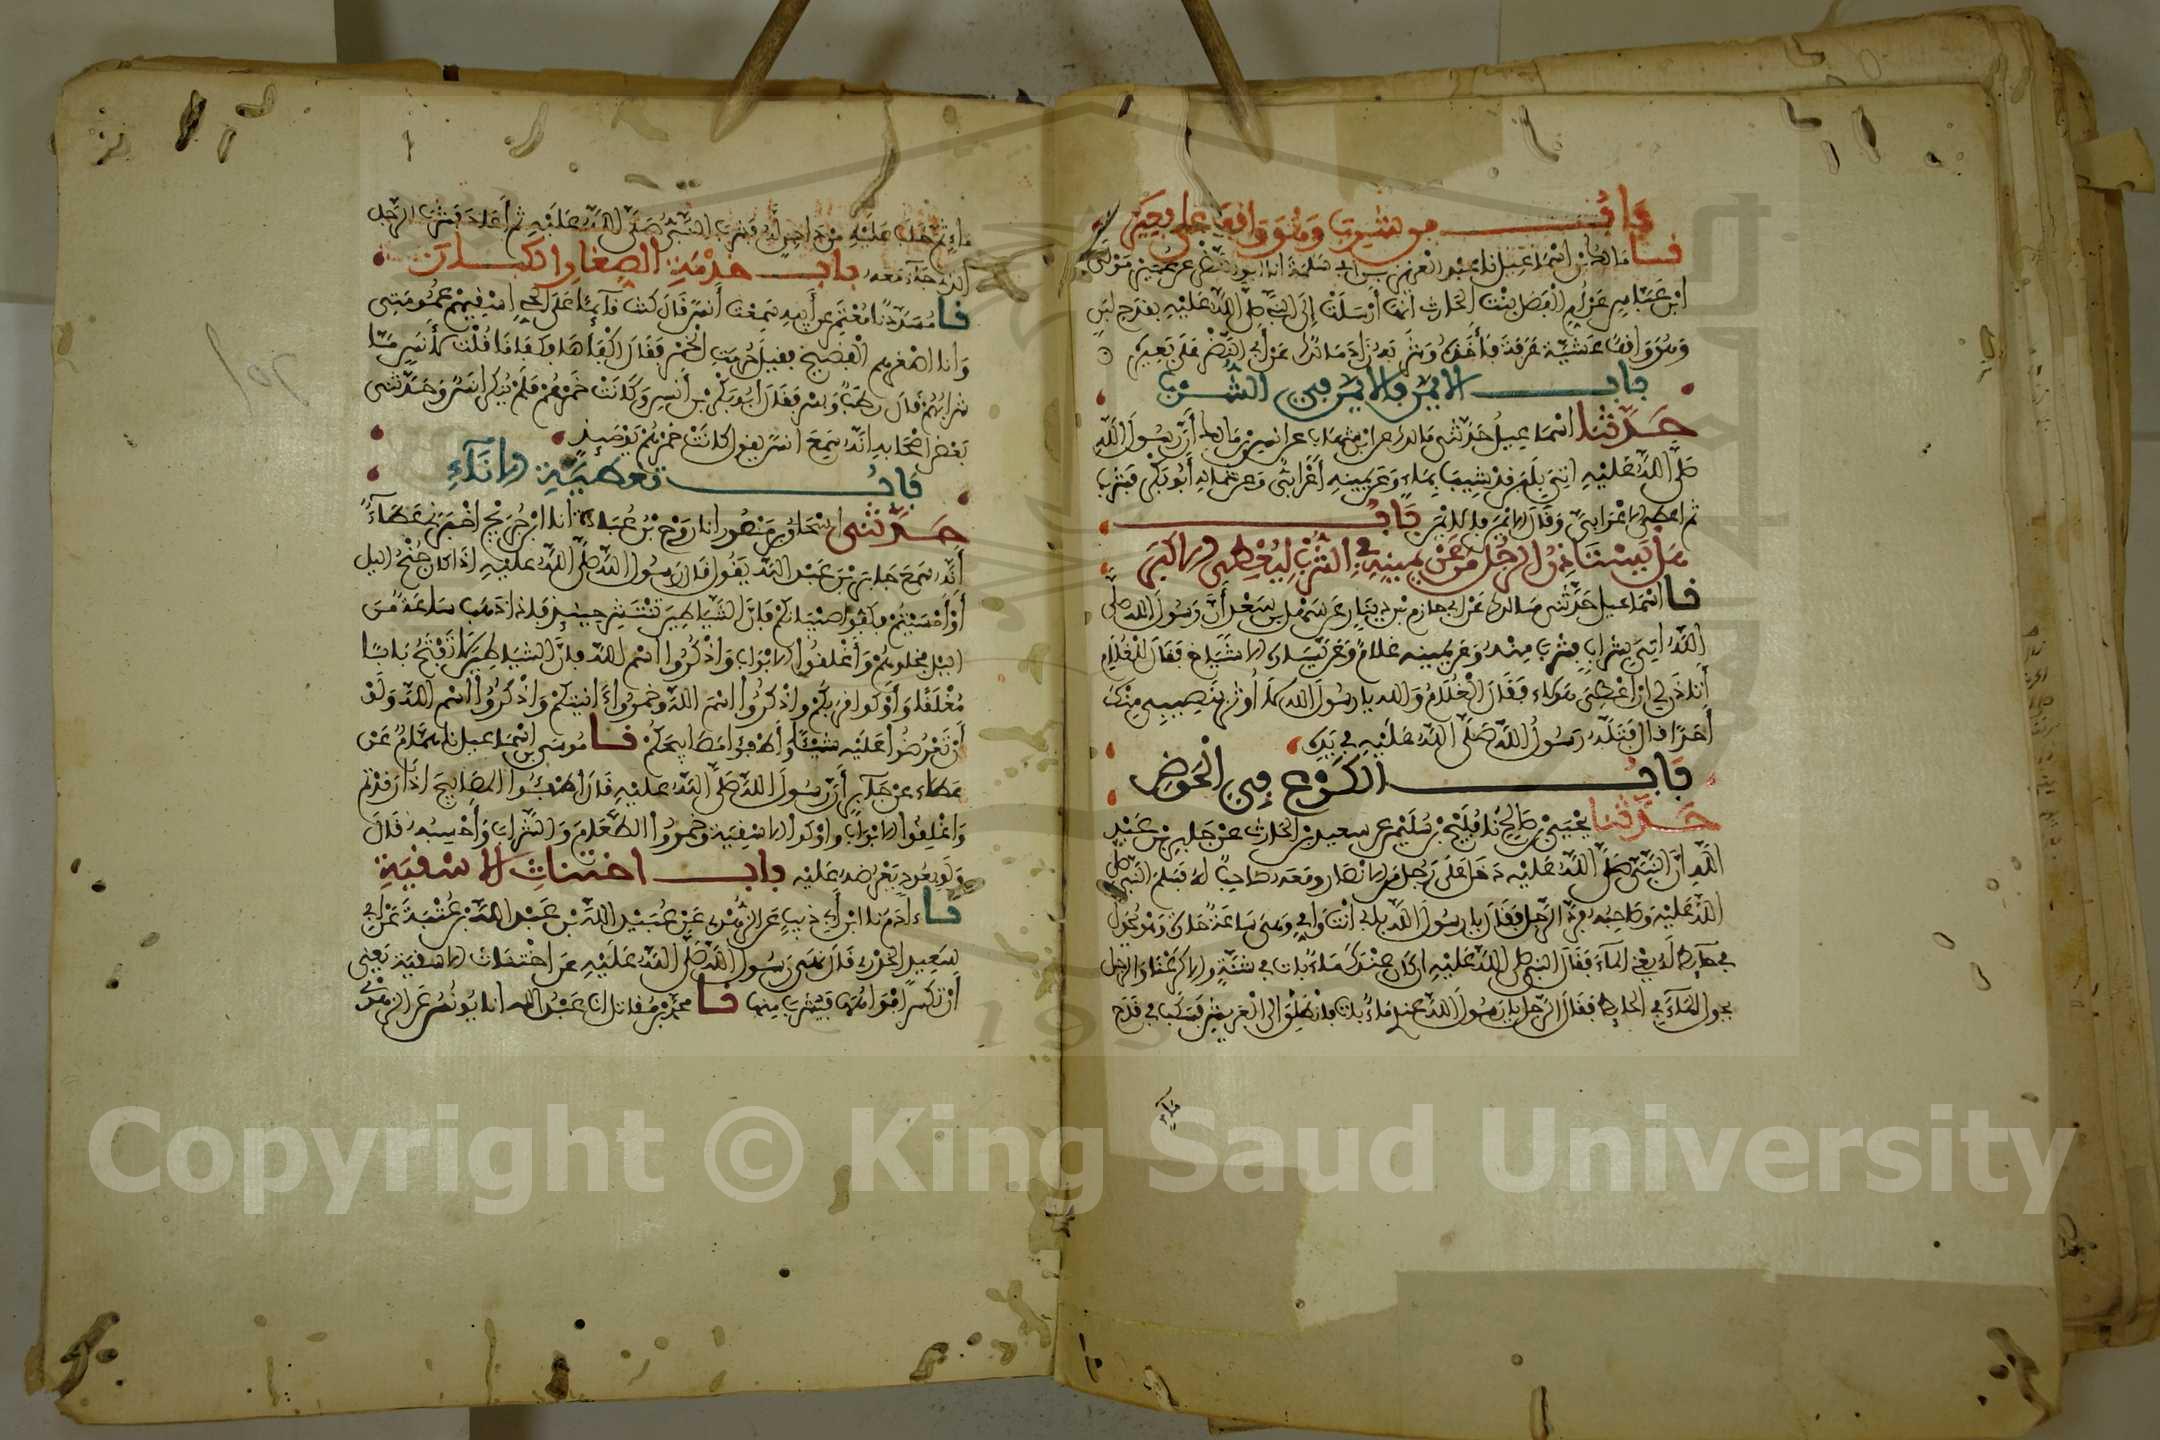 باب من شرب وهو واقف على بعيره
نا مالك بن اسماعيل نا عبد العزيز بن ابي سلمة انا ابو النضر عن عمير مولى
ابن عباس عن ام الفضل بنت الحارث انها أرسلت إلى النبي صلى الله عليه بقدح لبن
وهو واقف عشية عرفة فأخذه وشربه زاد مالك عن أبي النضر على بعيره
باب الايمن فالايمن في الشرب
حدثنا اسماعيل حدثني مالك عن ابن شهاب عن انس بن مالك أن رسول الله
صلى الله عليه اتي بلبن قد شيب بماء وعن يمينه أعرابي وعن شماله أبو بكر فشرب
ثم اعطى الاعرابي وقال الايمن فالايمن باب
هل يستاذن الرجل من عن يمينه في الشرب ليعطي الاكبر
نا اسماعيل حدثني مالك عن ابي حازم بن دينار عن سهل بن سعد أن رسول الله صلى
الله اتي بشراب فشرب منه وعن يمينه غلام وعن يساره الاشياخ فقال للغلام
أتاذن لي ان اعطي هولاء فقال الغلام والله يا رسول الله لا أوثر بنصيبي منك
أحدا قال فتله رسول الله صلى الله عليه في يده
باب الكرع في الحوض
حدثنا يحيى بن صالح نا فليح بن سليم عن سعيد بن الحارث عن جابر بن عبد
الله ان النبي صلى الله عليه دخل على رجل من الانصار ومعه صاحب له فسلم النبي صلى
الله عليه وصاحبه فرد الرجل فقال يا رسول الله بابي انت وامي وهي ساعة حارة وهو يحول
في حايط له يعني الماء فقال النبي صلى الله عليه ان كان عندك ماء بات في شنة والا كرعنا والرجل
يحول الماء في الحايط فقال الرجل يا رسول الله عندي ماء بات فانطلق الى العريش فسكب في قدح
ماء
ماء ثم حلب عليه من داجن له فشرب النبي صلى الله عليه ثم أعاد فشرب الرجل
الذي جاء معه باب خدمة الصغار الكبار
نا مسدد نا معتمر عن أبيه سمعت أنسا قال كنت قائما على الحي اسقيهم عمومتي
وانا اصغرهم الفضيخ فقيل حرمت الخمر فقال اكفاها فكفانا قلت لأنس ما
شرابهم قال رطب وبسر فقال أبو بكر بن أنس وكانت خمرهم فلم ينكر انس وحدثني
بعض اصحابي انه سمع انسا يقول كانت خمرهم يومئذ
باب تغطية الاناء
حدثني اسحاق بن منصور انا روح بن عبادة انا ابن جريج اخبرني عطاء
أنه سمع جابر بن عبد الله يقول قال رسول الله صلى الله عليه اذا كان جنح الليل
أو أمسيتم فكفوا صبيانكم فان الشياطين تنتشر حينئذ فاذا ذهب ساعة من
الليل فخلوهم وأغلقوا الابواب واذكروا اسم الله فان الشيطان لا يفتح بابا
مغلقا وأوكوا قربكم واذكروا اسم الله وخمروا ءانيتكم واذكروا اسم الله ولو
أن تعرضوا عليه شيئا وأطفوا مصابيحكم نا موسى بن اسماعيل نا همام عن
عطاء عن جابر أن رسول الله صلى الله عليه قال أطفئوا المصابيح اذا رقدتم
واغلقوا الابواب واوكوا الاسقية وخمروا الطعام والشراب وأحسبه قال
ولو بعود تعرضه عليه باب اختناث الاسقية
نا ءادم نا ابن أبي ذيب عن الزهري عن عبيد الله بن عبد الله بن عتبة عن ابي
سعيد الخدري قال نهى رسول الله صلى الله عليه عن اختناث الاسقية يعني
أن تكسر افواهها فيشرب منها نا محمد بن مقاتل انا عبد الله انا يونس عن الزهري
Copyright © King Saud University